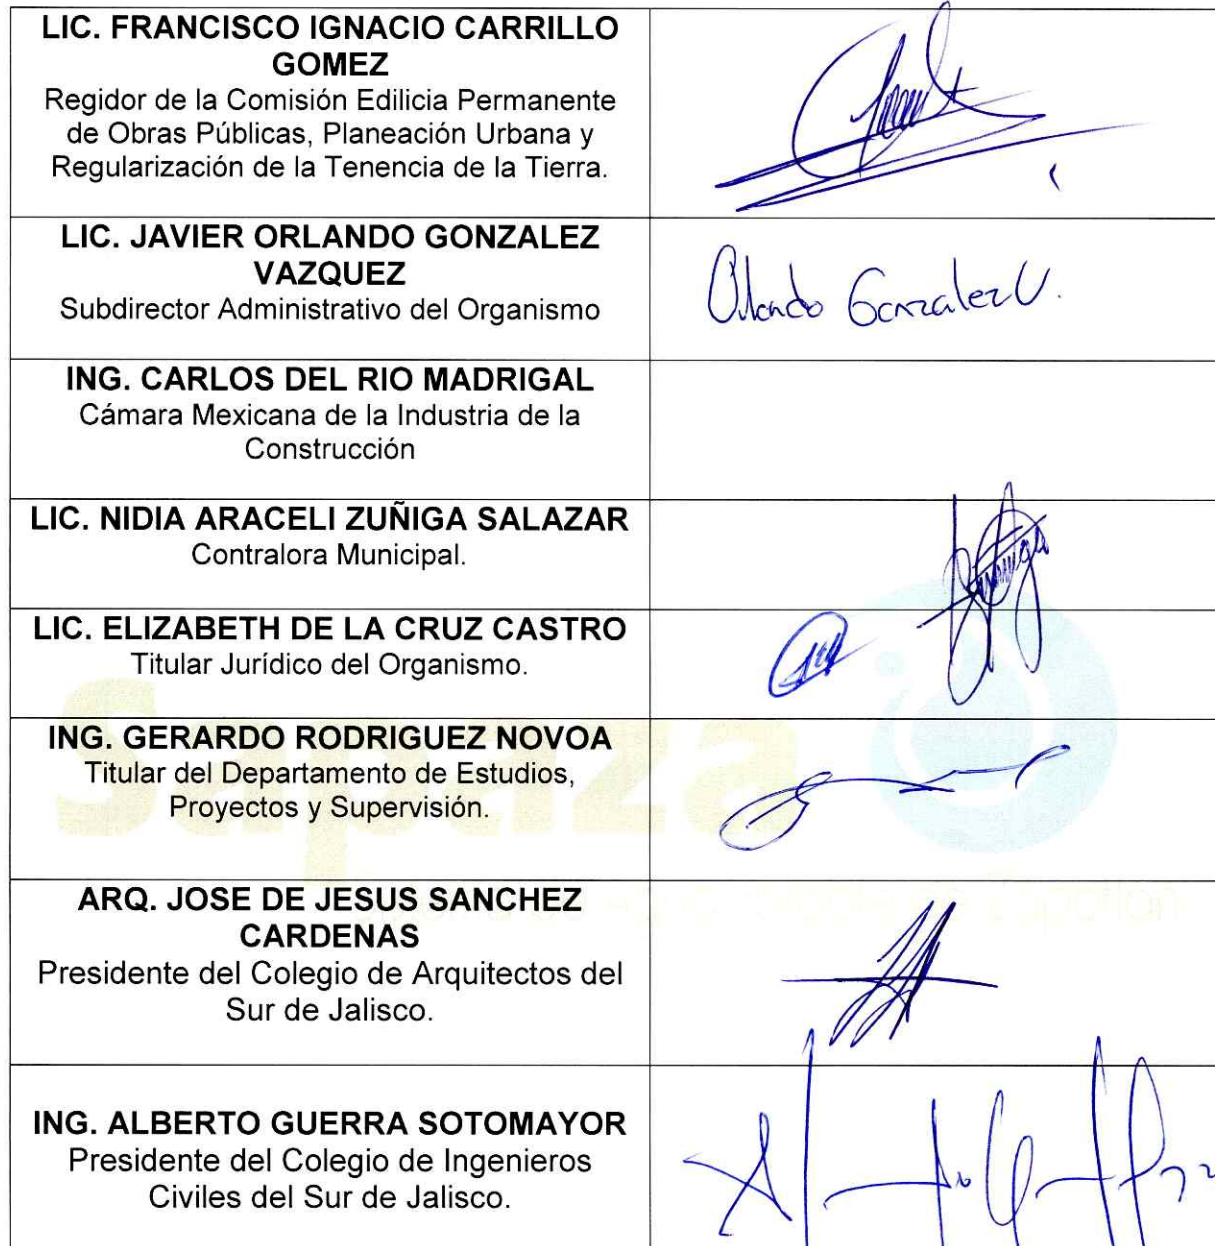 LIC. FRANCISCO IGNACIO CARRILLO
GOMEZ
Regidor de la Comisión Edilicia Permanente
de Obras Públicas, Planeación Urbana y
Regularización de la Tenencia de la Tierra.
LIC. JAVIER ORLANDO GONZALEZ
VAZQUEZ
Subdirector Administrativo del Organismo
Orlando Gonzalez V.
ING. CARLOS DEL RIO MADRIGAL
Cámara Mexicana de la Industria de la
Construcción
LIC. NIDIA ARACELI ZUÑIGA SALAZAR
Contralora Municipal.
LIC. ELIZABETH DE LA CRUZ CASTRO
Titular Jurídico del Organismo.
Sapaza
ING. GERARDO RODRIGUEZ NOVOA
Titular del Departamento de Estudios,
Proyectos y Supervisión.
ARQ. JOSE DE JESUS SANCHEZ
CARDENAS
Presidente del Colegio de Arquitectos del
Sur de Jalisco.
ING. ALBERTO GUERRA SOTOMAYOR
Presidente del Colegio de Ingenieros
Civiles del Sur de Jalisco.